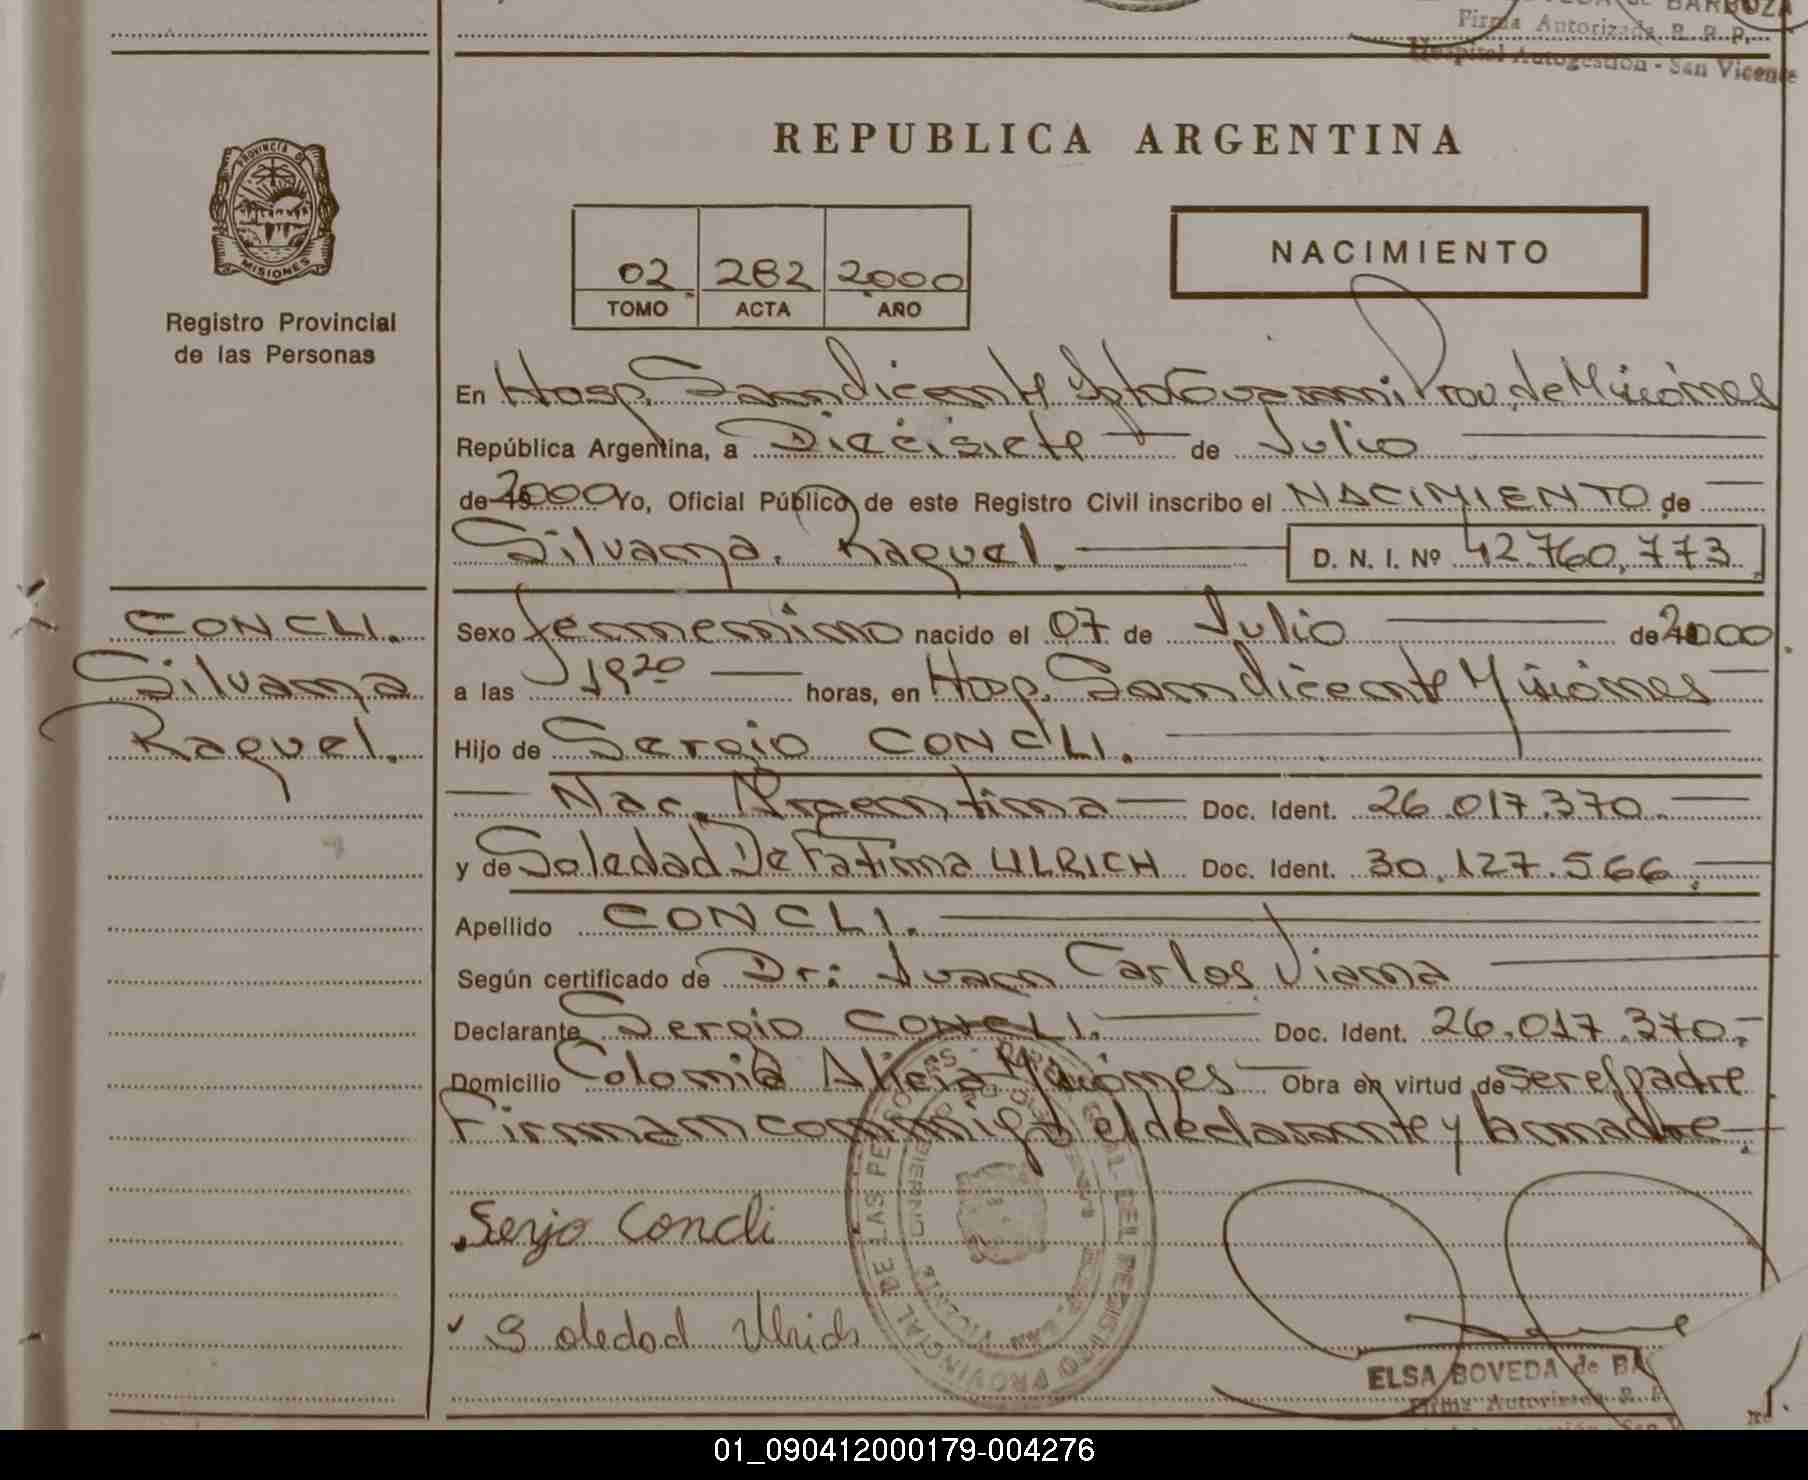 BARBOZA
Firma Autorizada R. R. P.
Hospital Autogestión - San Vicente
REPUBLICA ARGENTINA
PROVINCIA DE
MISIONES
Registro Provincial
de las Personas
02 282 2000
TOMO ACTA AÑO
NACIMIENTO
En Hosp. San Vicente Dpto Guarani Prov. de Misiones
República Argentina, a Diecisiete de Julio
de 2000 Yo, Oficial Público de este Registro Civil inscribo el NACIMIENTO de
Silvana. Raquel. D. N. I. Nº 42.760.773.
CONCLI.
Silvana
Raquel.
Sexo femenino nacido el 07 de Julio de 2000.
a las 19 20 horas, en Hosp. San Vicente Misiones
Hijo de Sergio CONCLI.
Nac. Argentina Doc. Ident. 26.017.370.
y de Soledad De Fatima ULRICH Doc. Ident. 30.127.566.
Apellido CONCLI.
Según certificado de Dr: Juan Carlos Viana
Declarante Sergio CONCLI. Doc. Ident. 26.017.370.
Domicilio Colonia Alicia Misiones Obra en virtud de ser el padre
Firman conmigo el declarante y la madre.
Serjo Concli
Soledad Ulrich
PROVINCIAL DE LAS PERSONAS
DEL REGISTRO
ELSA BOVEDA de BA
Firma Autorizada R.
01_090412000179-004276